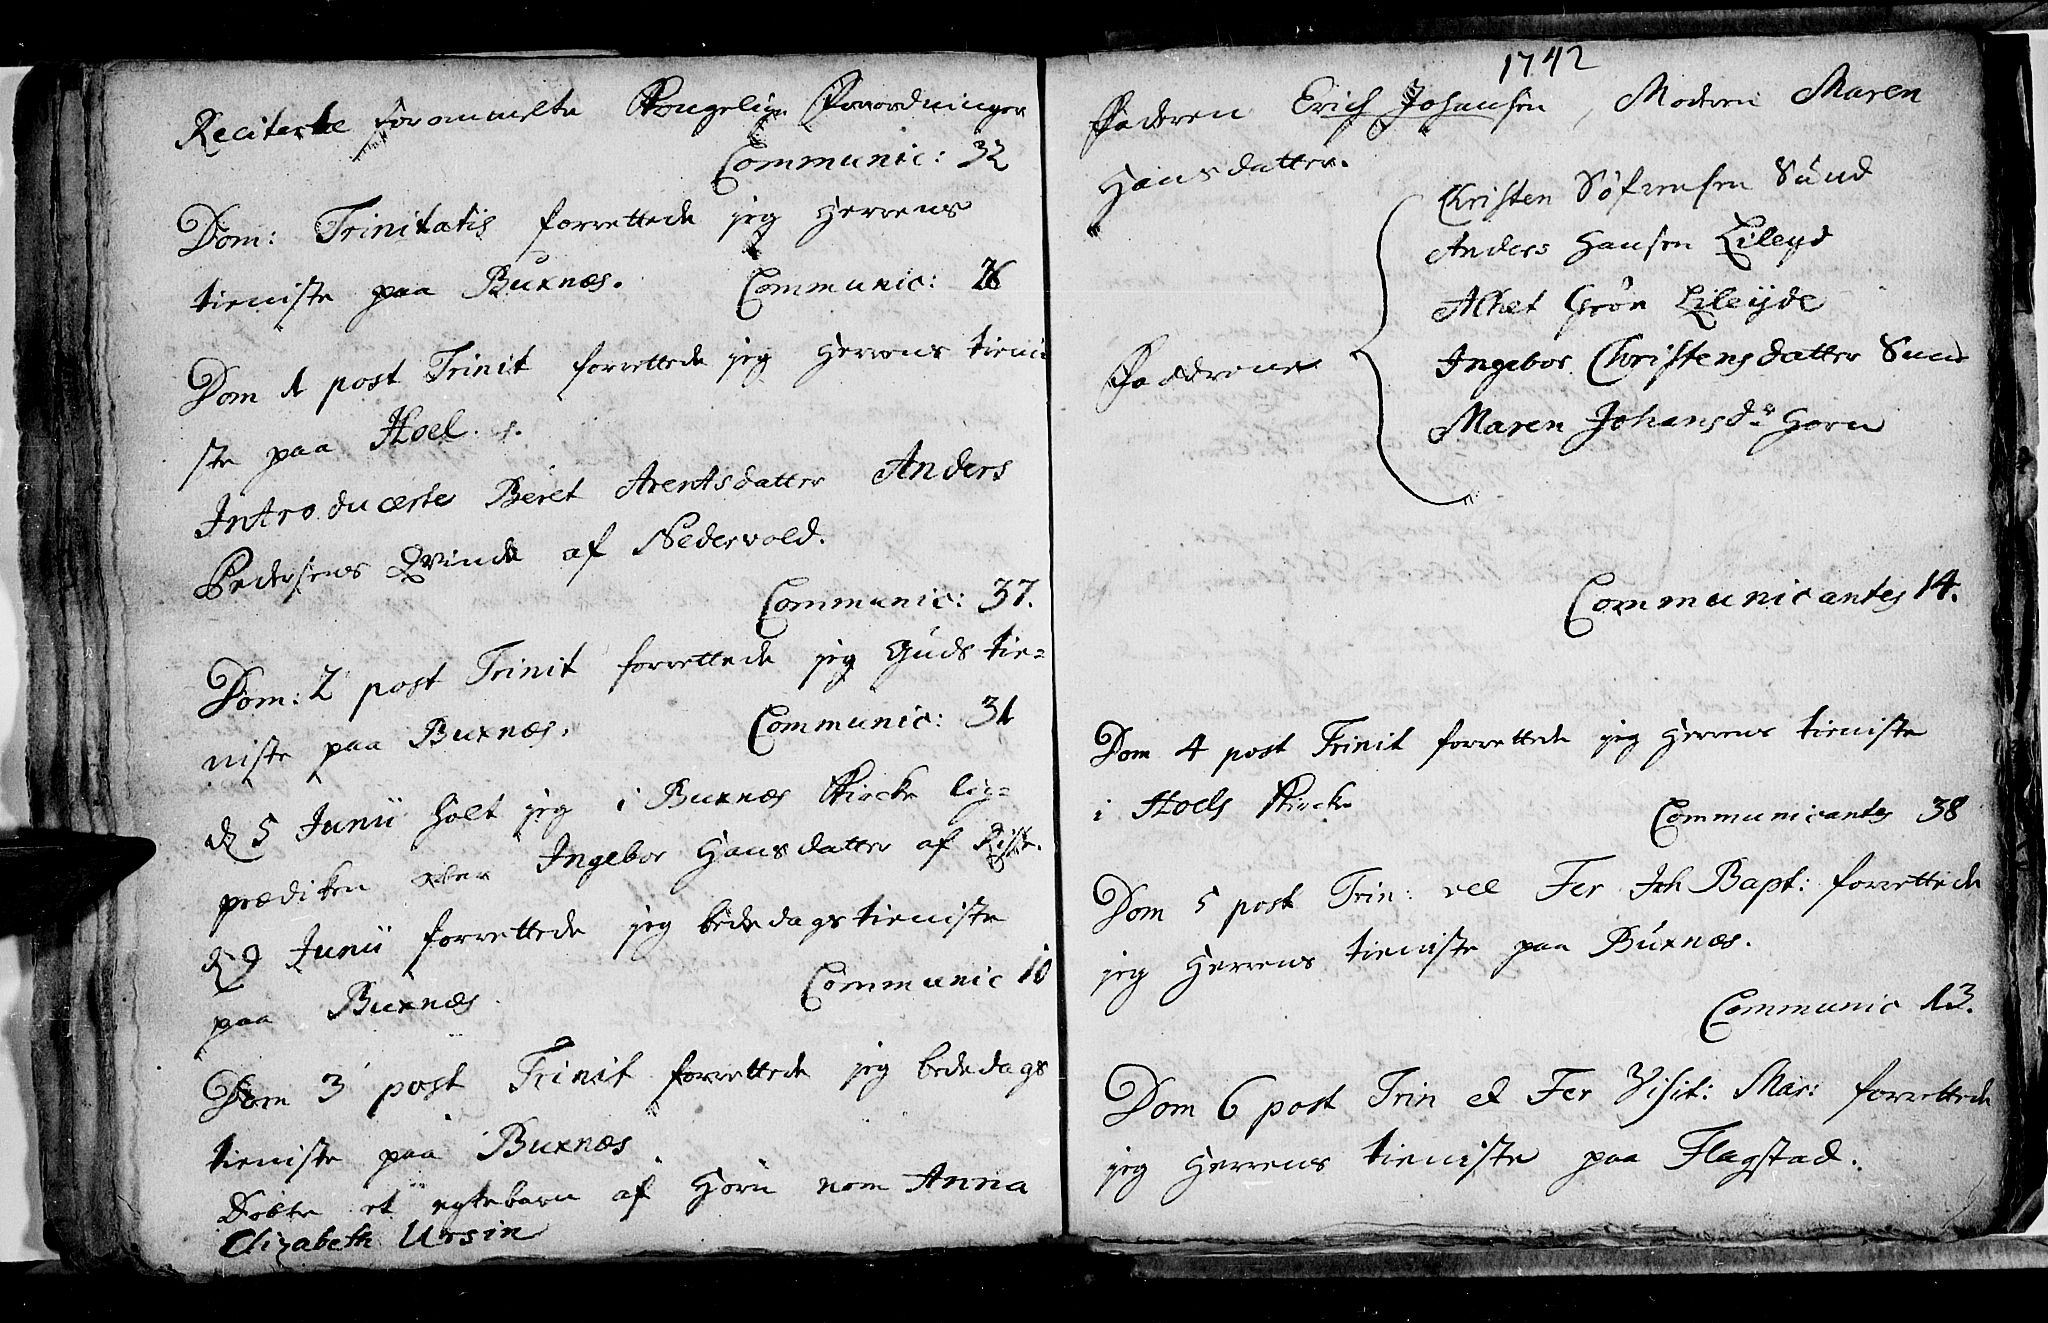 Reciterte forommelte Kongelige Forordninger
Communic: 32
Dom: Trinitatis forrettede jeg Herrens
tieniste paa Buxnæs. Communic: 26
Dom 1 post Trinit forrettede jeg Herrens tieni
ste paa Hoel.
Introducerte Beret Arentsdatter Anders
Pedersens Qvinde af Nedervold.
Communic: 37.
Dom: 2 post Trinit forrettede jeg Guds tie=
niste paa Buxnæs. Communic: 31
d 5 Junii holt jeg i Buxnæs Kircke lig=
prædiken over Ingebor Hansdatter af
d 9 Junii forrettede jeg bededags tieniste
paa Buxnæs. Communic 10
Dom 3 post Trinit forrettede jeg bededags
tieniste paa Buxnæs
Døbte et egtebarn af Horn nom Anna
Elizabeth Ursin
1742
Faderen Erich Johansen, Moderen Maren
Hansdatter.
Christen Søfrensen Sund
Anders Hansen Lileyd
Alhet Grøn Lileyde
Faddrene Ingebor Christensdatter Sund
Maren Johansdr Horn
Communicantes 14.
Dom 4 post Trinit forrettede jeg Herrens tieniste
i Hoels Kircke Communicantes 38
Dom 5 post Trin: vel Fer Joh Bapt: forrettede
jeg Herrens tieniste paa Buxnæs.
Communic 13.
Dom 6 post Trin et Fer Visit: Mar: forrettede
jeg Herrens tieniste paa Flagstad.